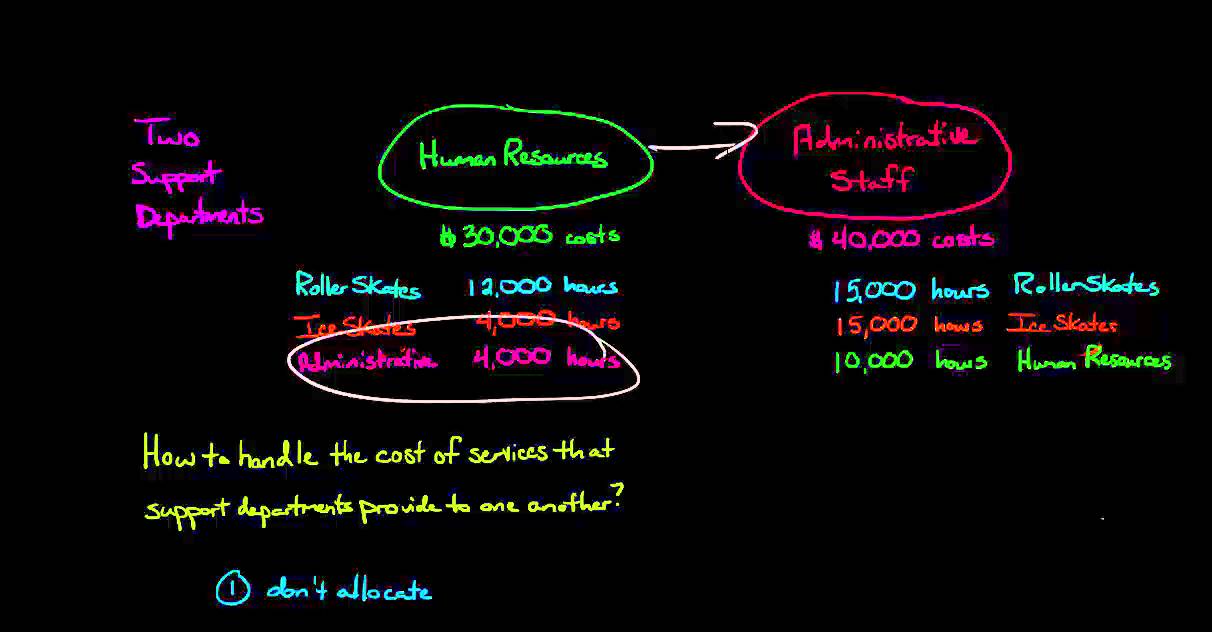 Two
Support
Departments
Human Resources
$30,000 costs
Roller Skates 12,000 hours
Ice Skates 4,000 hours
Administrative 4,000 hours
Administrative
Staff
$40,000 costs
15,000 hours Roller Skates
15,000 hours Ice Skates
10,000 hours Human Resources
How to handle the cost of services that
support departments provide to one another?
1 don't allocate